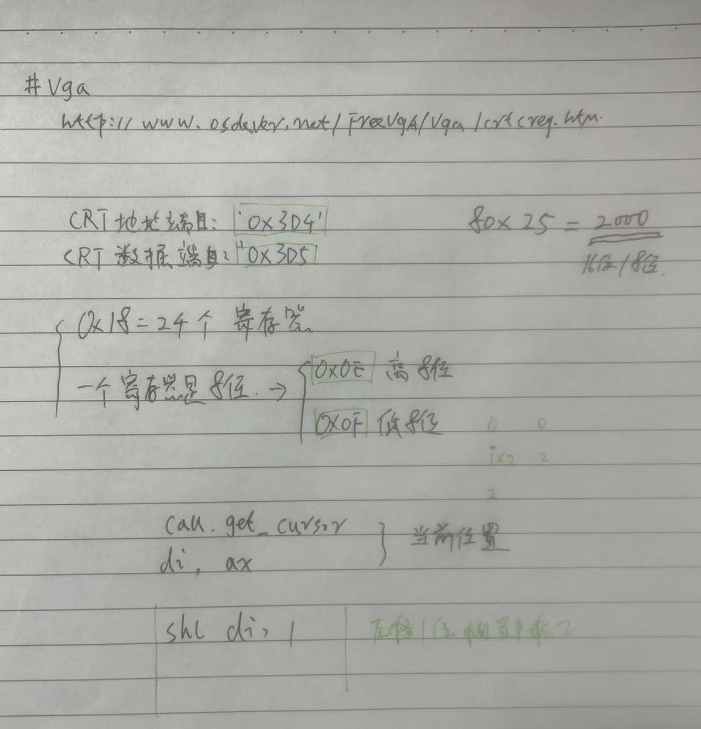 # Vga
http://www.osdever.net/FreeVGA/Vga/crtcreg.htm.
CRT 地址端口: '0x3D4' 80x25 = 2000
CRT 数据端口: '0x3D5' 16位/8位.
0x18 = 24个 寄存器
一个寄存器是8位. → 0x0E 高8位
0x0F 低8位
0 0
1x2 2
2
call. get_cursor
di, ax 当前位置
shl di, 1 左移1位相当于乘2